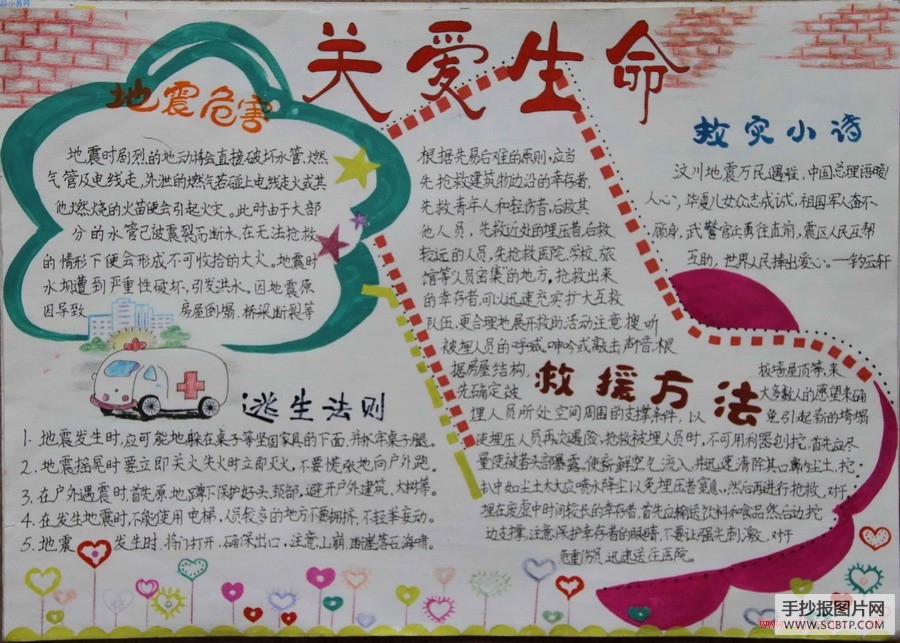 关爱生命
地震危害
地震时剧烈的地动将会直接破坏水管、燃
气管及电线走,外泄的燃气若碰上电线走火或其
他燃烧的火苗便会引起火灾。此时由于大部
分的水管已被震裂而断水,在无法抢救
的情形下便会形成不可收拾的大火。地震时
水坝遭到严重性破坏,引发洪水。因地震原
因导致 房屋倒塌、桥梁断裂等
逃生法则
1. 地震发生时,应可能地躲在桌子等坚固家具的下面,并抓牢桌子腿。
2. 地震摇晃时要立即关火失火时立即灭火,不要慌张地向户外跑。
3. 在户外遇震时,首先原地蹲下保护好头、颈部,避开户外建筑、大树等。
4. 在发生地震时,不能使用电梯,人员较多的地方不要拥挤,不轻率妄动。
5. 地震 发生时,将门打开,确保出口,注意山崩、断崖落石海啸。
根据先易后难的原则,应当
先抢救建筑物边沿的幸存者,
先救青年人和轻伤者,后救其
他人员,先救近处的埋压者,后救
较远的人员,先抢救医院、学校、旅
馆等人员密集的地方,抢救出来
的幸存者,可以迅速充实扩大互救
队伍,更合理地展开救助活动注意搜听
被埋人员的呼喊、呻吟或敲击声音,根
据房屋结构,
先确定被
埋人员所处空间周围的支撑条件,以
救援方法
板墙屋顶等,来
大多数人的愿望来确
免引起新的垮塌
使埋压人员再次遇险,抢救被埋人员时,不可用利器刨挖,首先应尽
量使被者头部暴露,使新鲜空气流入,并迅速清除其口鼻内尘土,挖
扒中如尘土太大应喷水降尘以免埋压者窒息,然后再进行抢救,对于
埋在废墟中时间较长的幸存者,首先应输送饮料和食品然后边挖
边支撑,注意保护幸存者的眼睛,不要让强光刺激,对于
危重伤员,迅速送往医院。
救灾小诗
汶川地震万民遇难,中国总理语暖
人心,华夏儿女众志成城,祖国军人奋不
顾身,武警官兵勇往直前,震区人民互帮
互助,世界人民捧出爱心。
手抄报图片网
WWW.SCBTP.COM